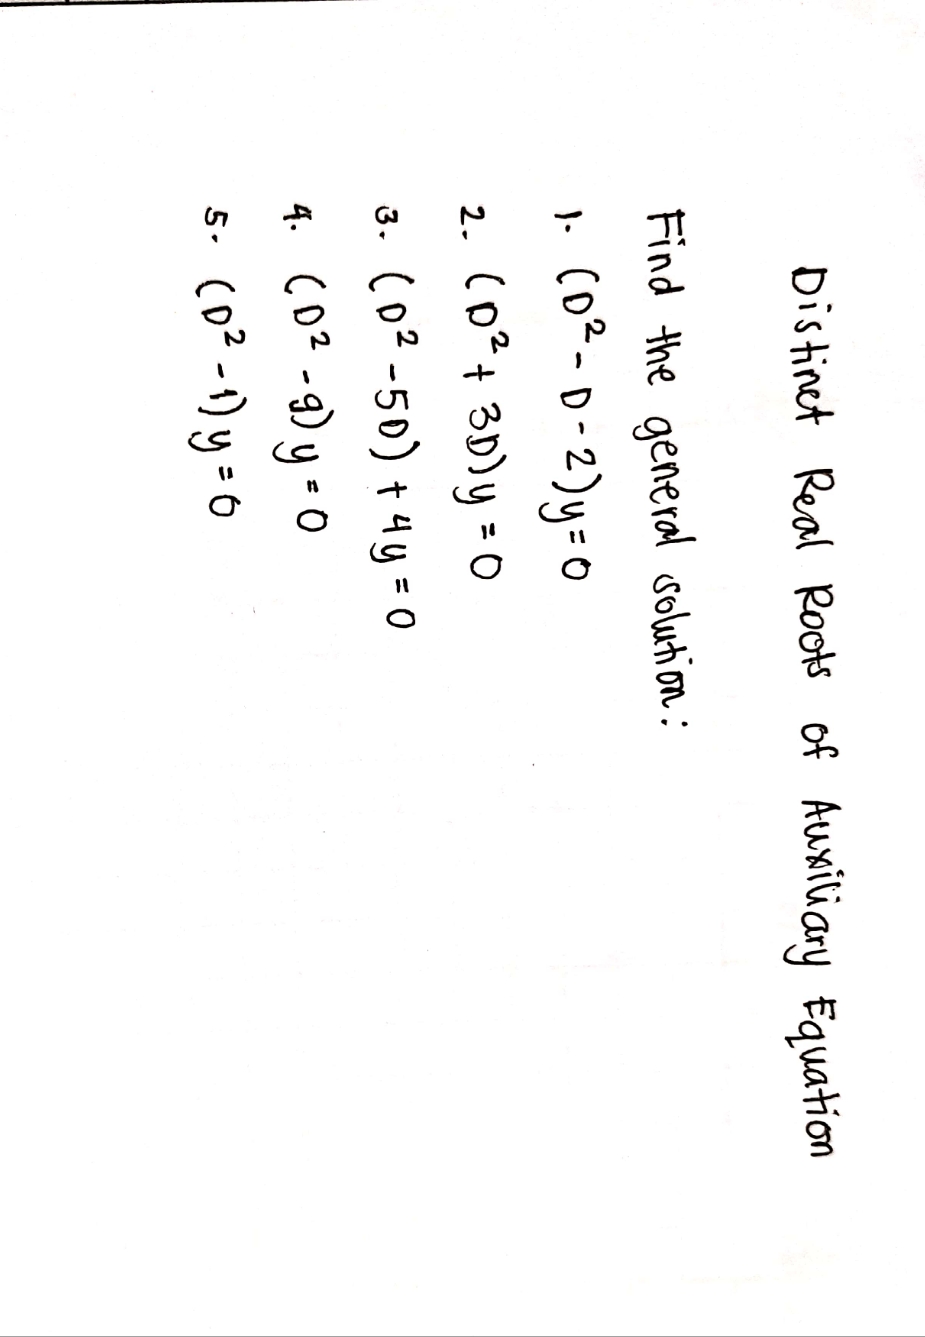 Distinct Real Roots of Auxiliary Equation
Find the general solution:
1. (D² - D - 2)y = 0
2. (D² + 3D)y = 0
3. (D² - 5D) + 4y = 0
4. (D² - 9)y = 0
5. (D² - 1)y = 0